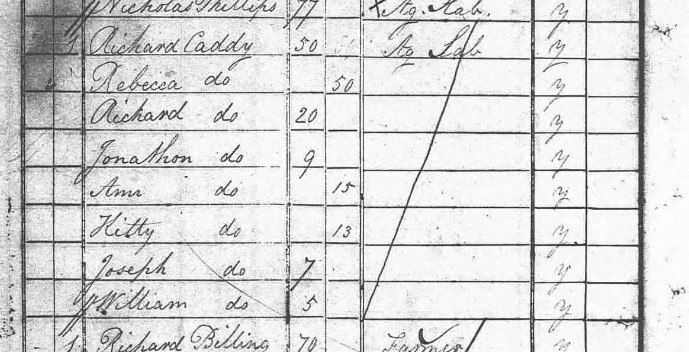 Nicholas Phillips 77 Ag. Lab. y
1 Richard Caddy 50 Ag Lab y
Rebecca do 50 y
Richard do 20 y
Jonathon do 9 y
Ann do 15 y
Kitty do 13 y
Joseph do 7 y
William do 5 y
1 Richard Billing 70 Farmer y